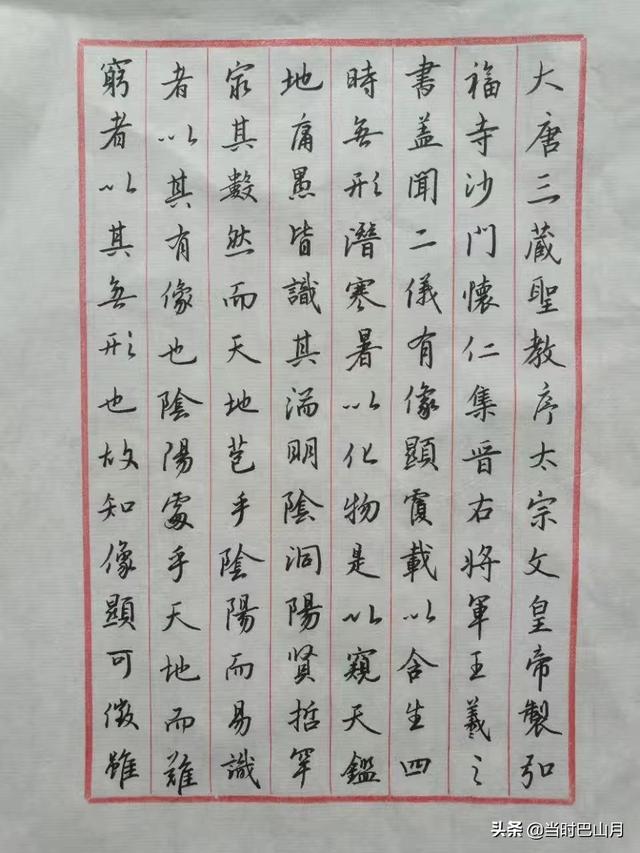 大唐三藏聖教序太宗文皇帝製弘
福寺沙門懷仁集晋右將軍王羲之
書盖聞二儀有像顯覆載以含生四
時無形潛寒暑以化物是以窺天鑑
地庸愚皆識其湍明陰洞陽賢哲罕
窮其數然而天地苞乎陰陽而易識
者以其有像也陰陽處乎天地而難
窮者以其無形也故知像顯可徵雖
头条 @当时巴山月